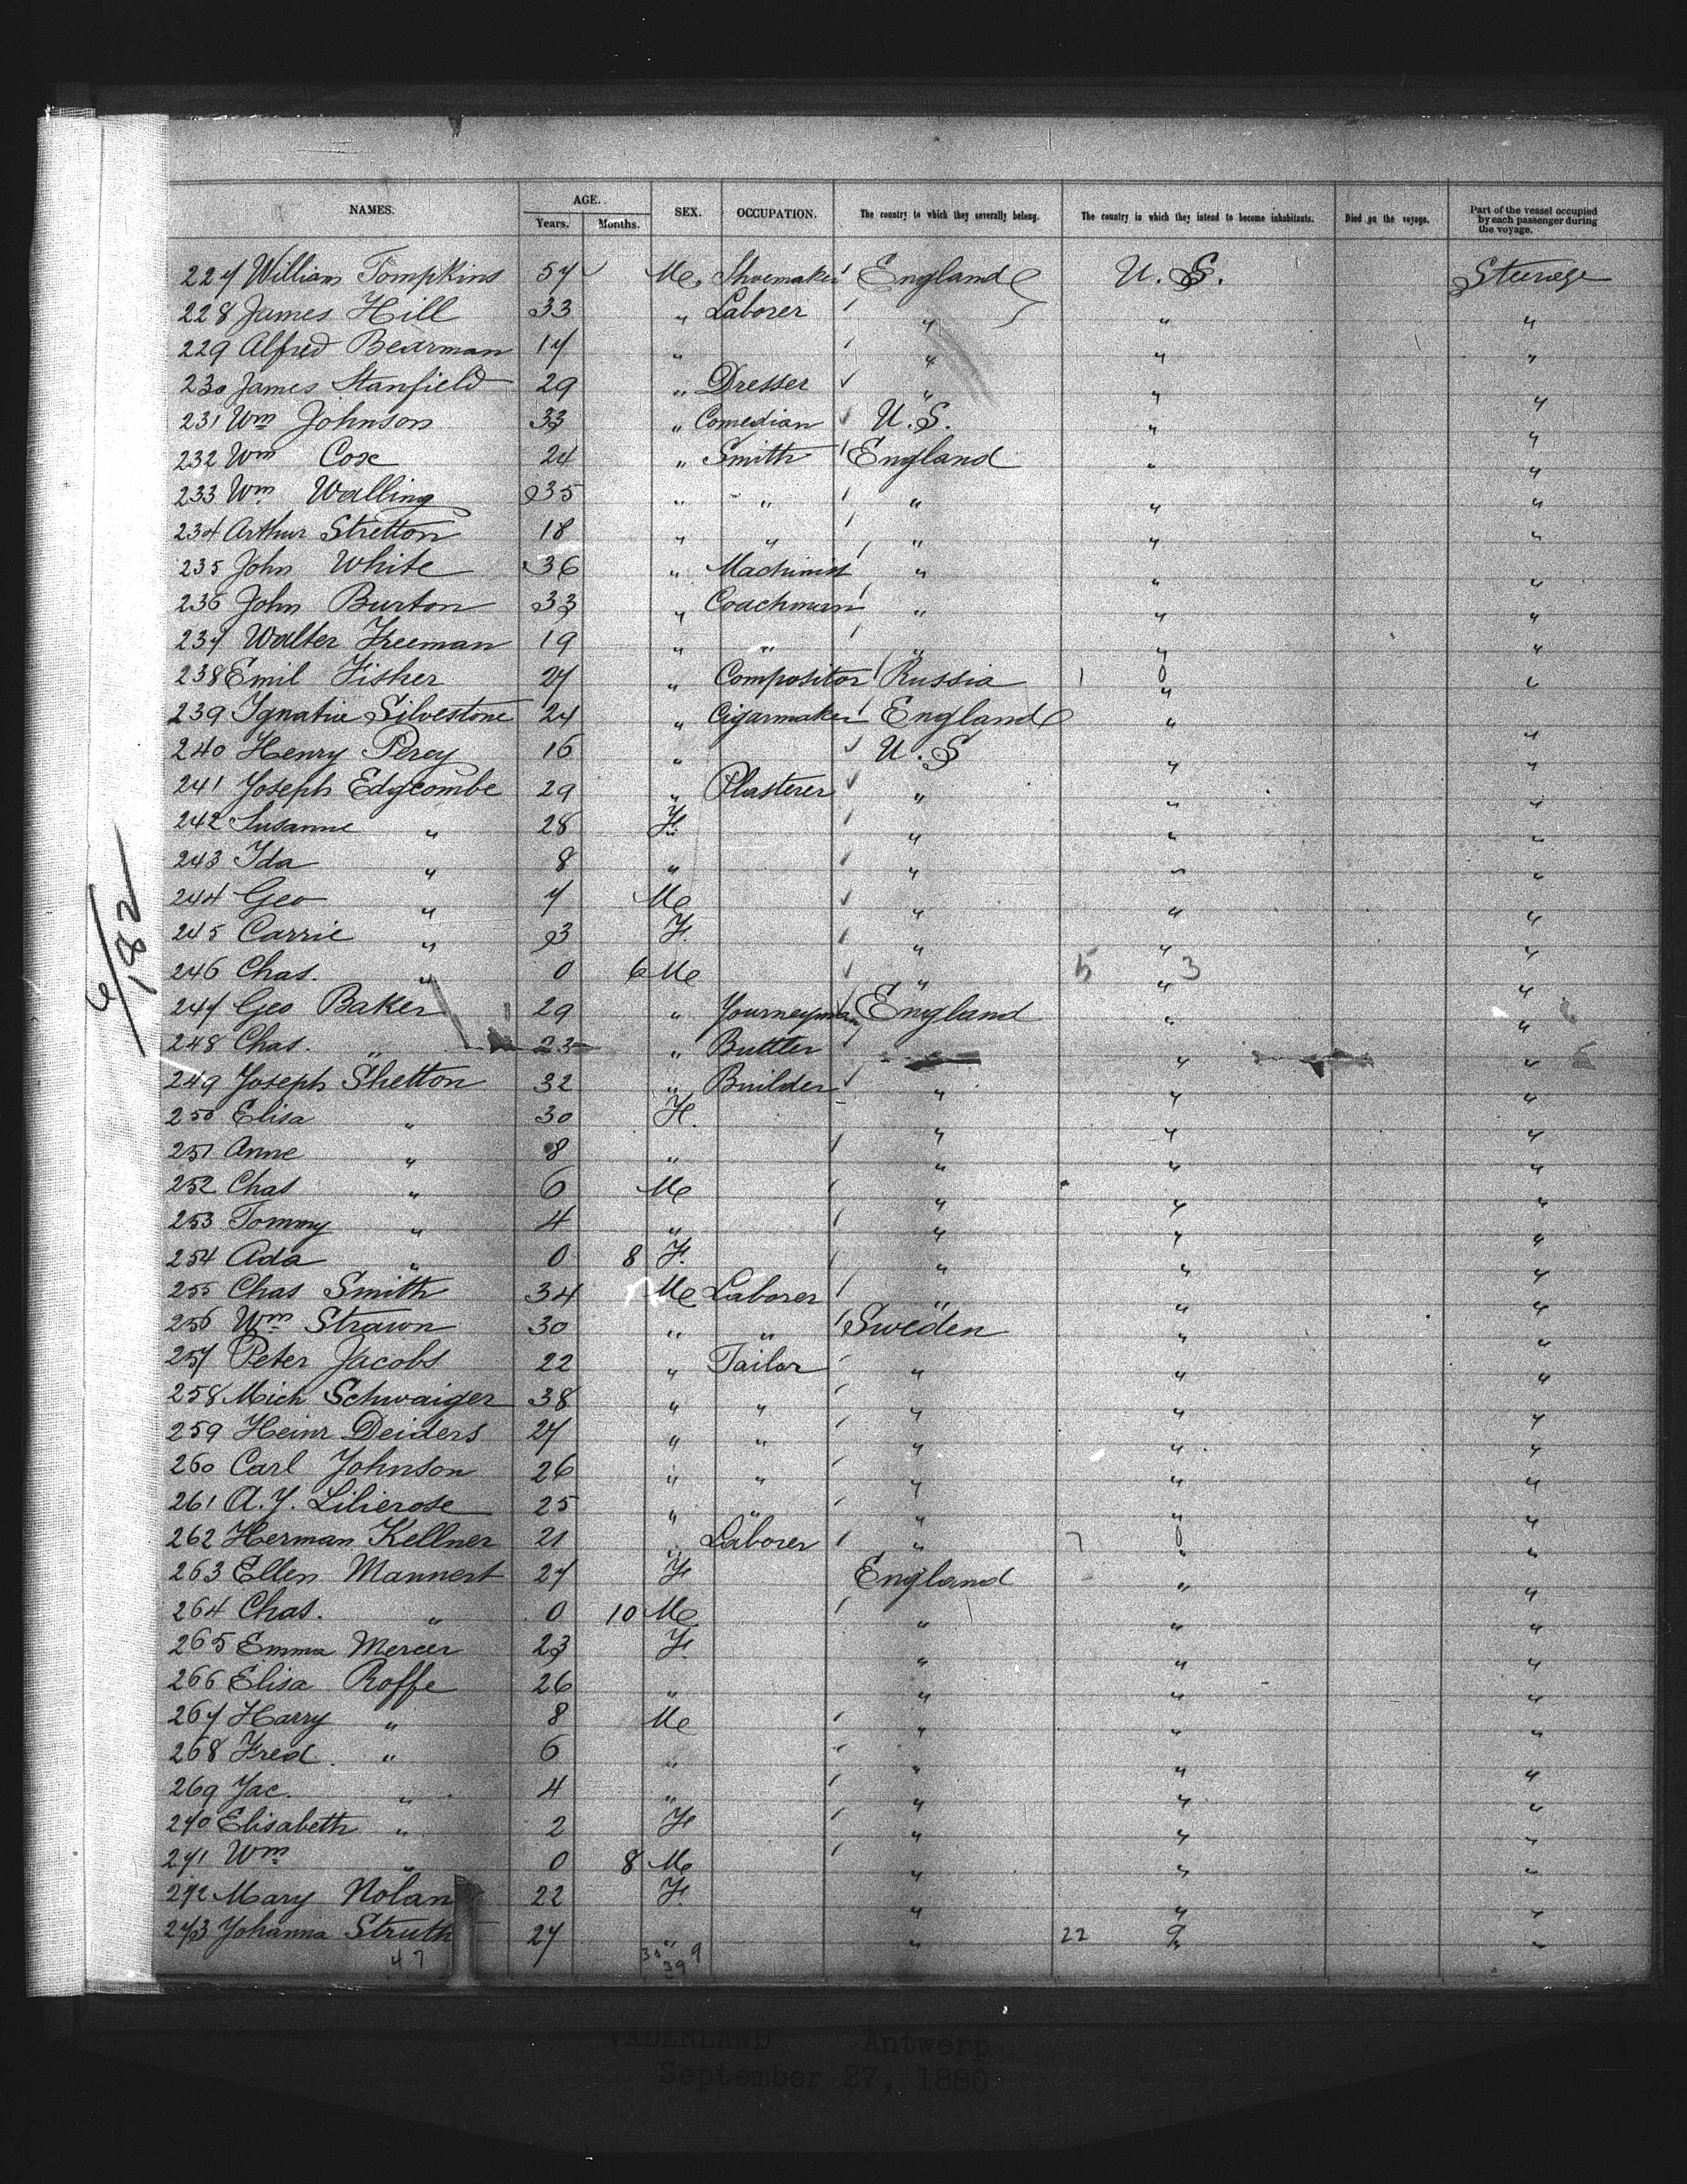 NAMES. AGE. SEX. OCCUPATION. The country to which they severally belong. The country in which they intend to become inhabitants. Died on the voyage. Part of the vessel occupied by each passenger during the voyage.
Years. Months.
227 William Tompkins 57 M. Shoemaker England U. S. Steerage
228 James Hill 33 " Laborer " " "
229 Alfred Bearman 17 " " " "
230 James Stanfield 29 " Dresser " " "
231 Wm Johnson 33 " Comedian U. S. " "
232 Wm Cox 24 " Smith England " "
233 Wm Walling 35 " " " " "
234 Arthur Stretton 18 " " " " "
235 John White 36 " Machinist " " "
236 John Burton 33 " Coachman " " "
237 Walter Freeman 19 " " " " "
238 Emil Fisher 27 " Compositor Russia 1 0 " "
239 Ignatius Silvestone 24 " Cigarmaker England " "
240 Henry Percy 16 " U. S " "
241 Joseph Edgcombe 29 " Plasterer " " "
242 Susanne " 28 F. " " "
243 Ida " 8 " " " "
244 Geo " 7 M " " "
245 Carrie " 3 F. " " "
246 Chas. " 0 6 M " 5 3 " "
247 Geo Baker 29 " Journeyman England " "
248 Chas. " 23 " Buttler " " "
249 Joseph Shelton 32 " Builder " " "
250 Elisa " 30 F. " " "
251 Anne " 8 " " " "
252 Chas " 6 M " " "
253 Tommy " 4 " " " "
254 Ada " 0 8 F. " " "
255 Chas Smith 34 M Laborer " " "
256 Wm Strawn 30 " " Sweden " "
257 Peter Jacobs 22 " Tailor " " "
258 Mich Schwaiger 38 " " " " "
259 Heinr Deiders 27 " " " " "
260 Carl Johnson 26 " " " " "
261 A. J. Lilierose 25 " " " " "
262 Herman Kellner 21 " Laborer " 7 0 " "
263 Ellen Mannert 27 F England " "
264 Chas. " 0 10 M " " "
265 Emma Mercer 23 F. " " "
266 Elisa Roffe 26 " " " "
267 Harry " 8 M " " "
268 Fred. " 6 " " " "
269 Jac. " 4 " " " "
270 Elisabeth " 2 F " " "
271 Wm " 0 8 M " " "
272 Mary Nolan 22 F. " " "
273 Johanna Struth 27 " " 22 9 " "
47 30 9
39
6/182
VADERLAND Antwerp
September 27, 1880